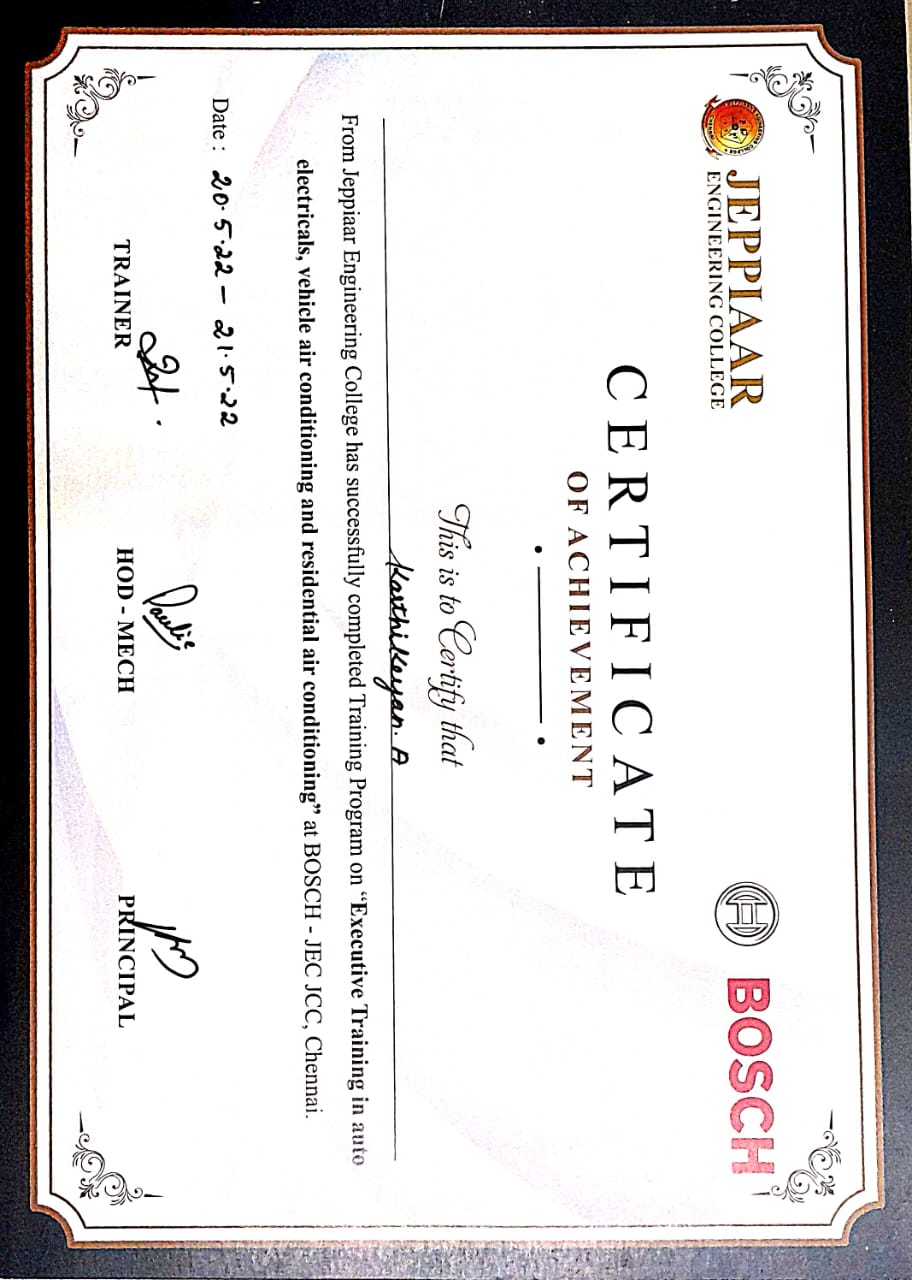 JEPPIAAR
ENGINEERING COLLEGE
BOSCH
CERTIFICATE
OF ACHIEVEMENT
This is to Certify that
Karthikeyan. A
From Jeppiaar Engineering College has successfully completed Training Program on “Executive Training in auto
electricals, vehicle air conditioning and residential air conditioning” at BOSCH - JEC JCC, Chennai.
Date : 20.5.22 – 21.5.22
TRAINER HOD - MECH PRINCIPAL